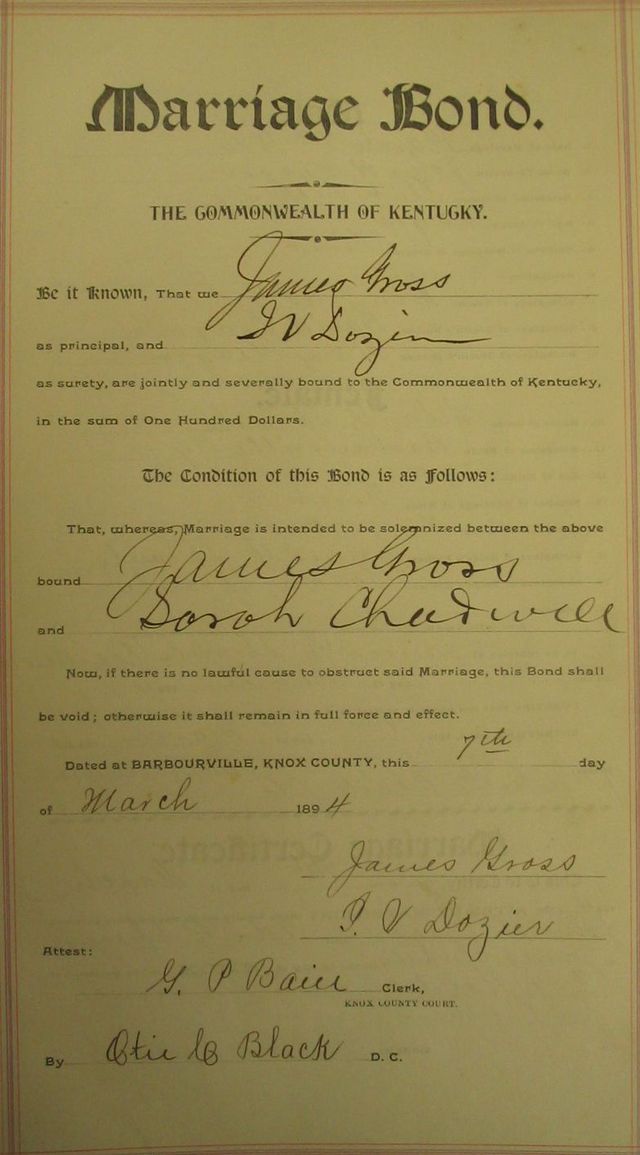 Marriage Bond.
THE COMMONWEALTH OF KENTUCKY.
Be it Known, That we James Gross
as principal, and Dozier
as surety, are jointly and severally bound to the Commonwealth of Kentucky,
in the sum of One Hundred Dollars.
The Condition of this Bond is as Follows:
That, whereas, Marriage is intended to be solemnized between the above
bound James Gross
and Sarah Chadwell
Now, if there is no lawful cause to obstruct said Marriage, this Bond shall
be void; otherwise it shall remain in full force and effect.
Dated at BARBOURVILLE, KNOX COUNTY, this 7th day
of March 1894
James Gross
V Dozier
Attest:
G. P Clerk,
KNOX COUNTY COURT.
By Black D. C.